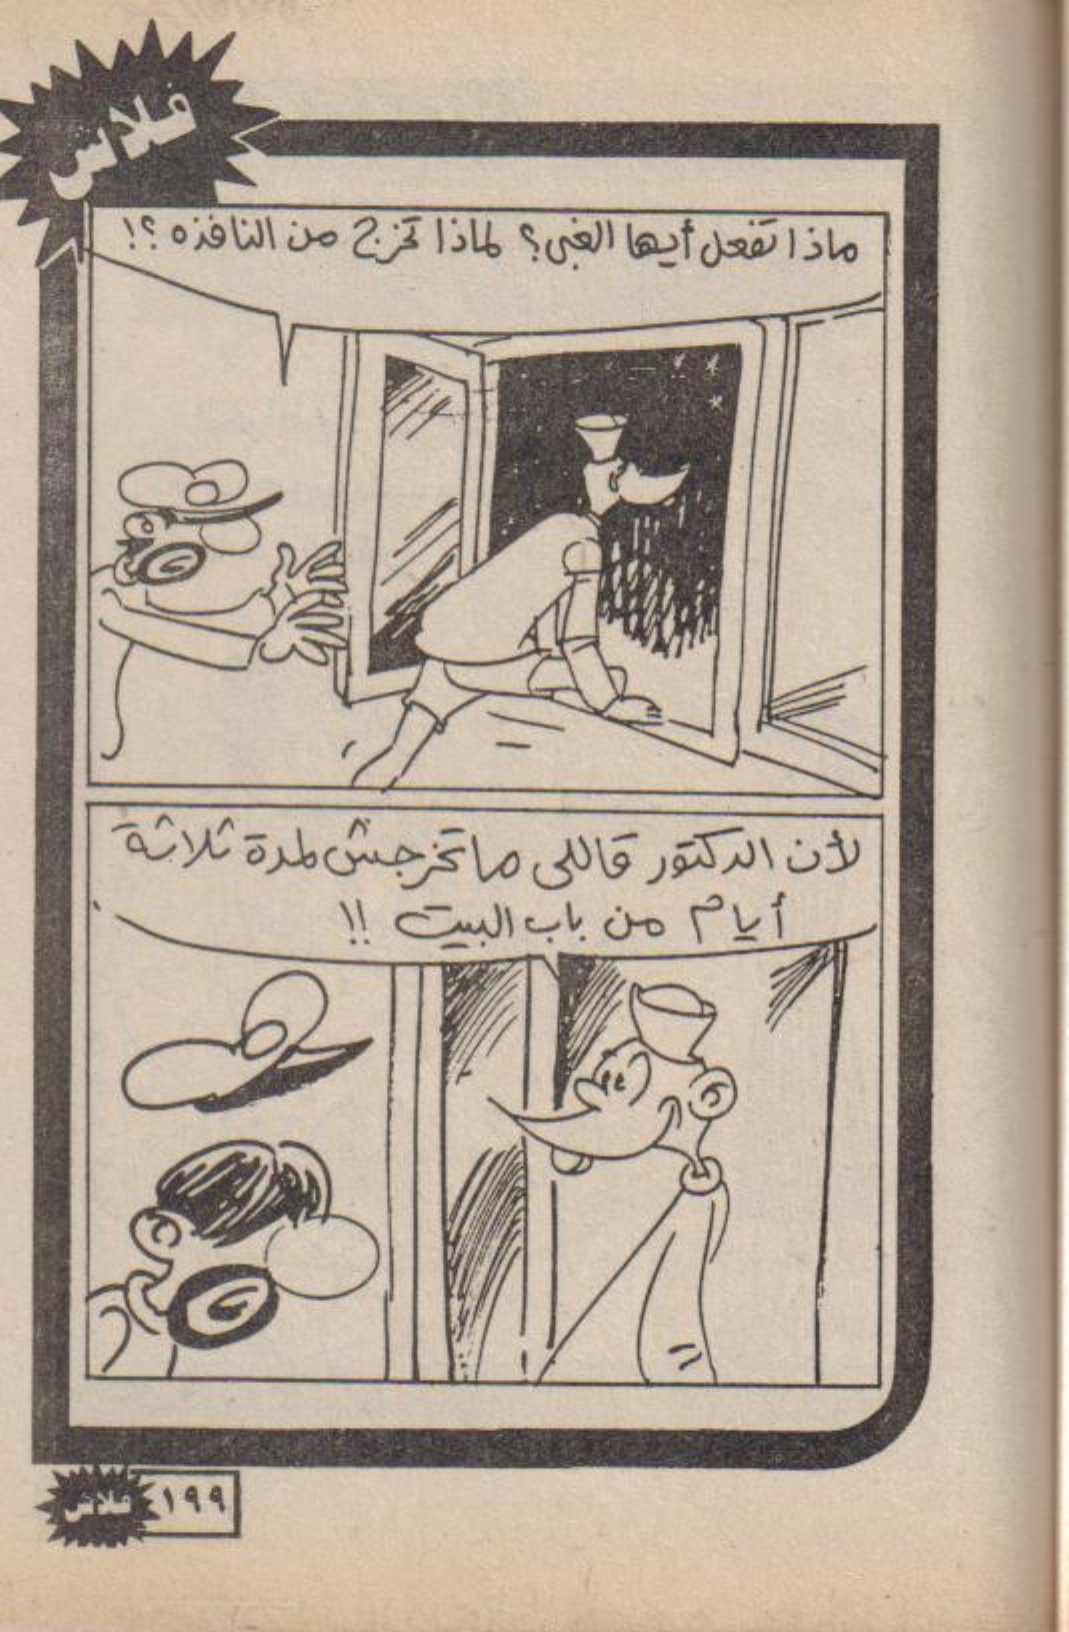 فلاش
ماذا تفعل أيها الغبى؟ لماذا تخرج من النافذه ؟!
لأن الدكتور قاللى ماتخرجش لمدة ثلاثة
أيام من باب البيت !!
فلاش ١٩٩